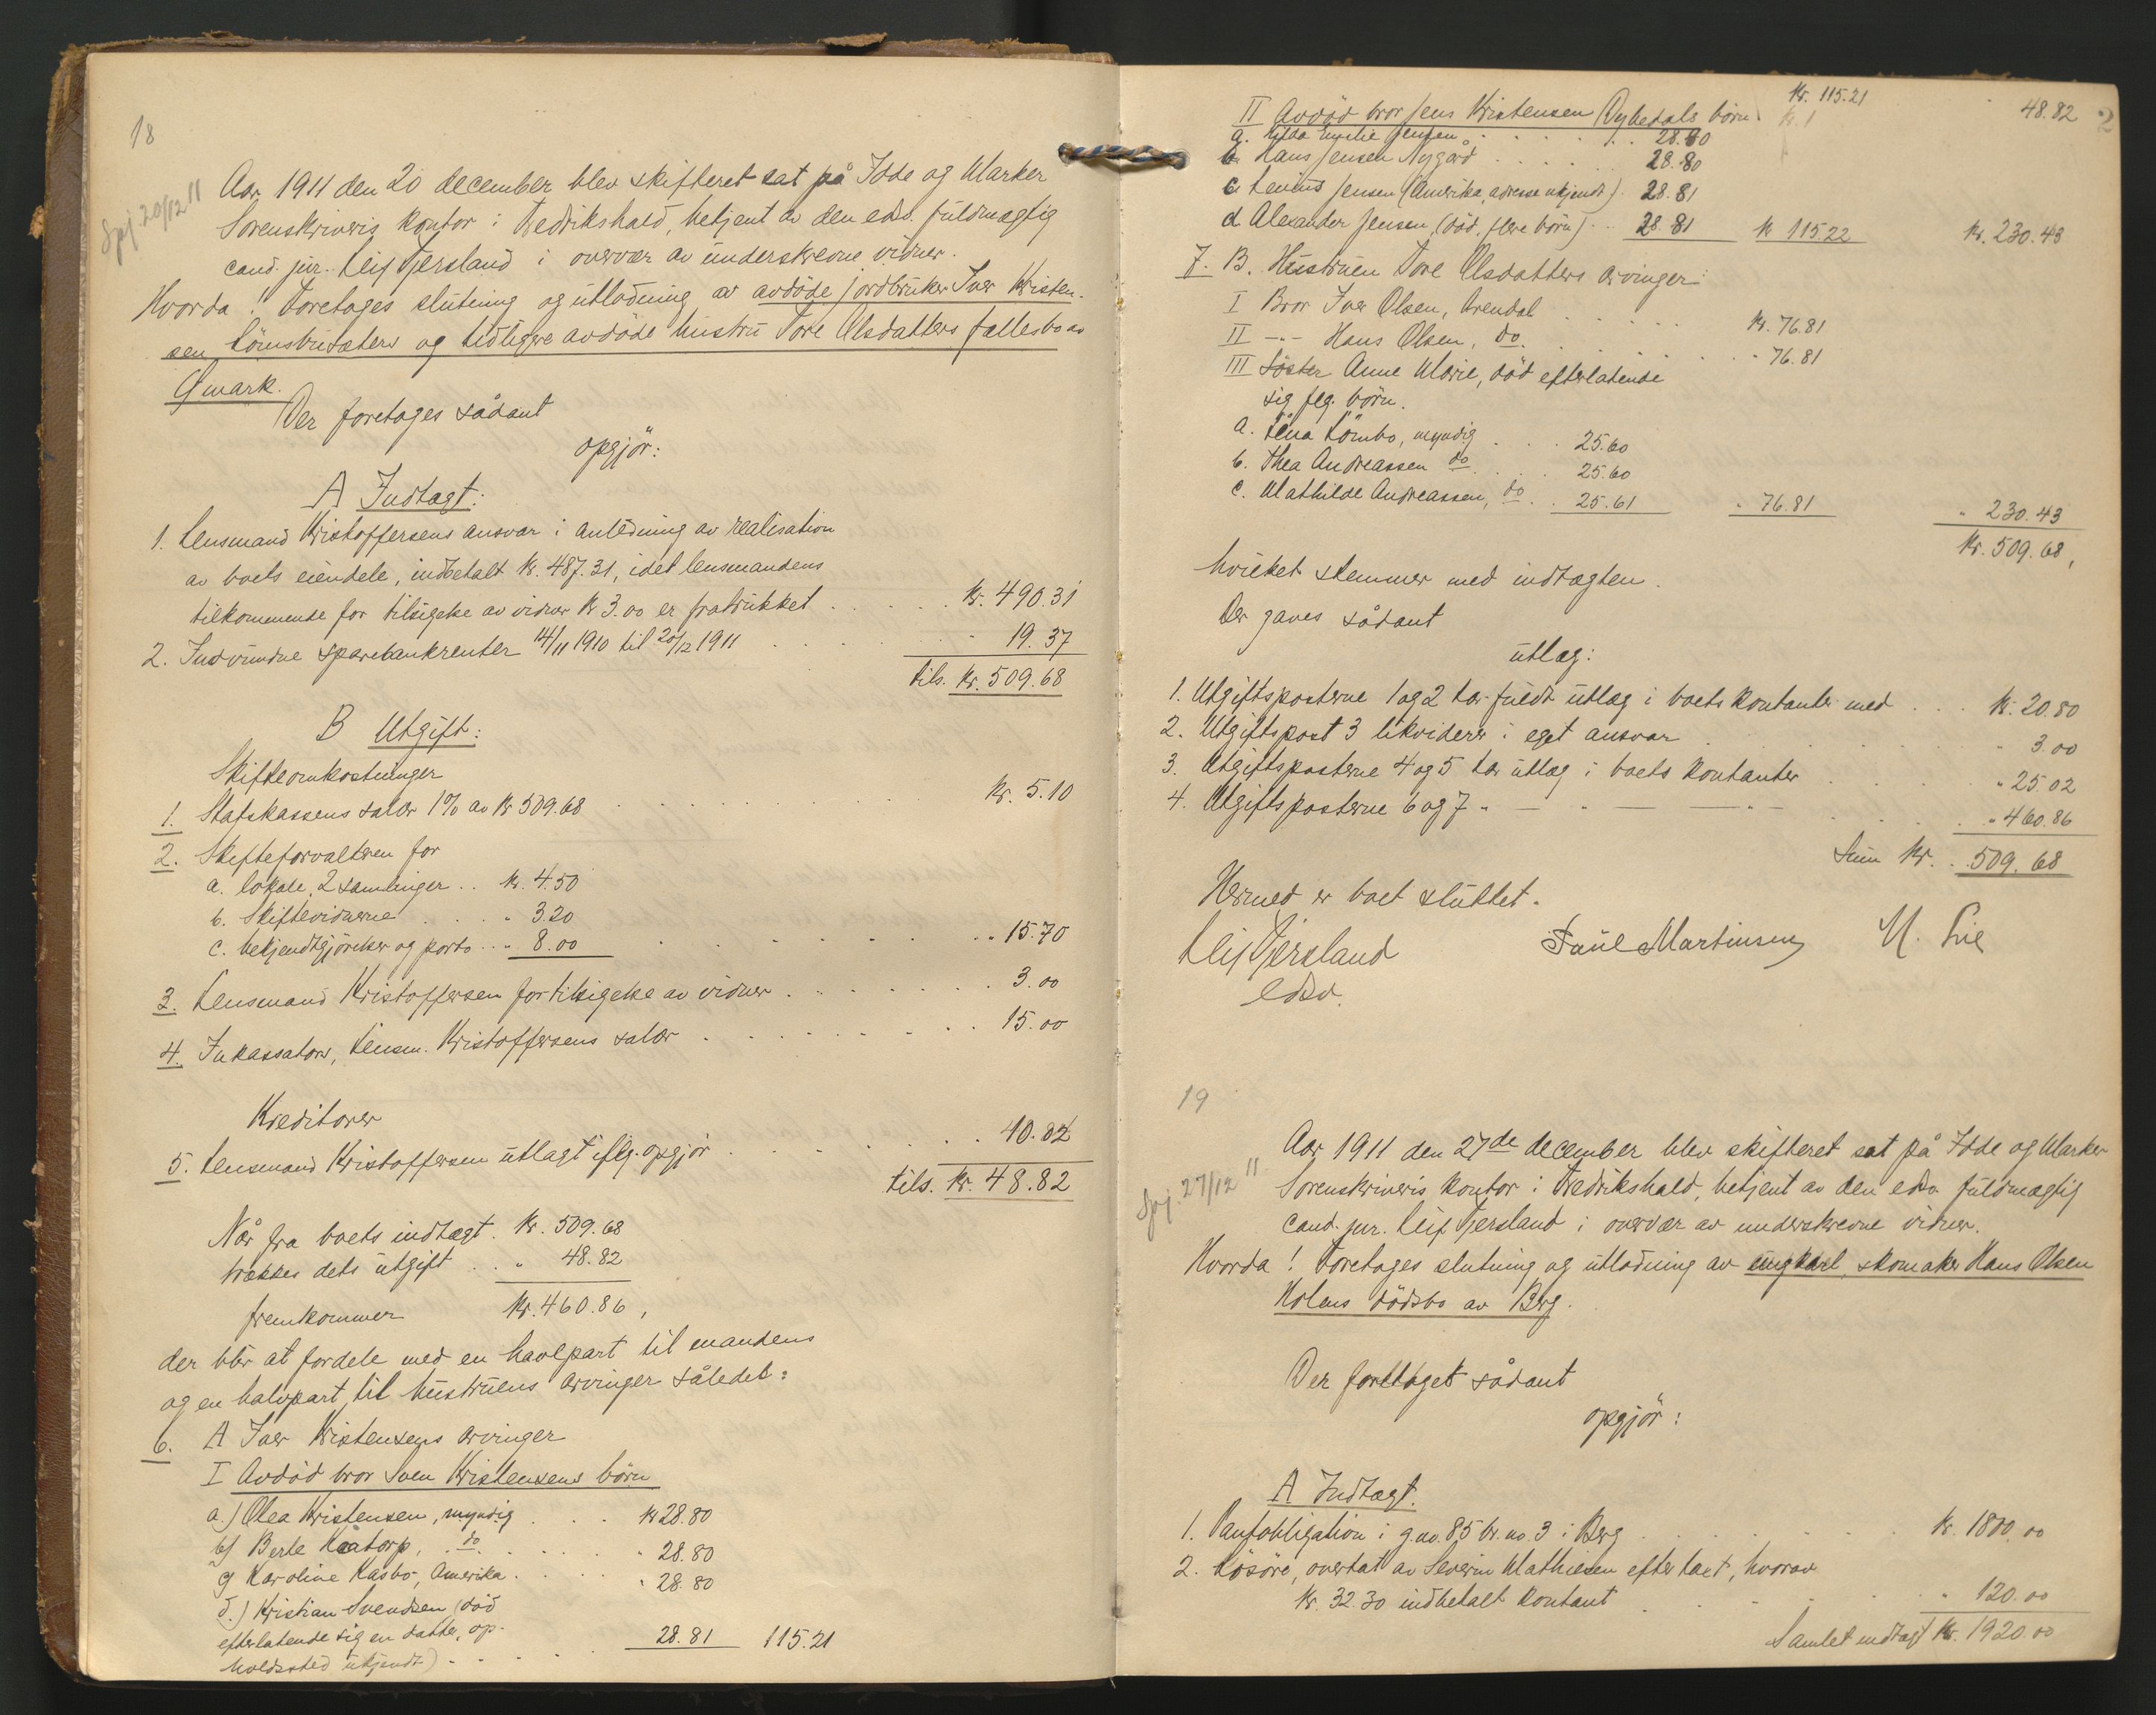 18
Spj. 20/12 11
Aar 1911 den 20 december blev skifteret sat på Idde og Marker
Sorenskriveris kontor i Fredrikshald, betjent av den edsv. fuldmægtig
cand. jur. Leif Gjersland i overvær av underskrevne vidner.
Hvorda! Foretages slutning og utlodning av avdöde jordbruker Iver Kristen-
sen Lörnsbusæters og tidligere avdöde hustru Tore Olsdatters fællesbo av
Ömark.
Der foretages sådant
opgjör:
A Indtægt:
1. Lensmand Kristoffersens ansvar i anledning av realisation
av boets eiendele, indbetalt kr. 487.31, idet lensmandens
tilkommende for tilsigelse av vidner kr 3.00 er fratrukket . . . . . kr. 490.31
2. Indvundne sparebankrenter 14/11 1910 til 20/12 1911 . . . 19.37
tils. kr. 509.68
B Utgift:
Skifteomkostninger
1. Statskassens salær 1% av kr 509.68 . . . . . . . kr. 5.10
2. Skifteforvalteren for
a. lokale, 2 samlinger . . kr. 4.50
b. Skiftevidnerne . . . . " 3.20
c. bekjendtgjörelser og porto . . . " 8.00 . . . . . . . . " 15.70
3. Lensmand Kristoffersen for tilsigelse av vidner . . . . . . . 3.00
4. Inkassator, Lensm. Kristoffersens salær . . . . . . . . 15.00
Kreditorer
5. Lensmand Kristoffersen utlagt iflg. opgjör . . . . . . . 10.02
tils. kr. 48.82
Når fra boets indtægt . kr. 509.68
trækkes dets utgift . . " 48.82
fremkommer kr. 460.86,
der blir at fordele med en havlpart til mandens
og en halvpart til hustruens arvinger således:
6. A Iver Kristensens arvinger
I Avdöd bror Sven Kristensens börn
a.) Olea Kristensen, myndig . . . kr 28.80
b) Berte Kåtorp, do . . . . . " 28.80
c) Karoline Kasbo, Amerika . . . . " 28.80
d.) Kristian Svendsen (död
efterlatende sig en datter, op-
holdssted ukjendt) . . . . . 28.81 115.21
kr. 115.21 48.82
2
II Avdöd bror Jens Kristensen Dybedals börn
a. Hilda Emilie Jensen . . . . . . 28.80
b. Hans Jensen Nygård . . . . . 28.80
c Levius Jensen (Amerika, adresse ukjendt) . 28.81
d Alexander Jensen, (död, flere börn) . . 28.81 kr 115.22 kr. 230.43
7. B. Hustruen Tore Olsdatters arvinger:
I Bror Iver Olsen, Arendal . . . . . kr. 76.81
II -"- Hans Olsen, do. . . . . . . . . " 76.81
III Söster Anne Marie, död efterlatende
sig flg. börn.
a. Lina Lömbo, myndig . . . 25.60
b. Thea Andreassen do . . . . 25.60
c. Mathilde Andreassen, do . . 25.61 " 76.81 " 230.43
kr. 509.68,
hvilket stemmer med indtægten.
Der gaves sådant
utlæg:
1. Utgiftsposterne 1 og 2 har fuldt utlæg i boets kontanter med . . . kr. 20.80
2. Utgiftspost 3 likviderer i eget ansvar . . . . . . . " 3.00
3. Utgiftsposterne 4 og 5 har utlæg i boets kontanter . . . . . " 25.02
4. Utgiftsposterne 6 og 7 " — " — — " — . . . . . " 460.86
Sum kr. . 509.68
Hermed er boet sluttet.
Leif Gjersland Paul Martinsen M. Lie
edsv.
19
Spj. 27/12 11
Aar 1911 den 27de december blev skifteret sat på Idde og Marker
Sorenskriveris kontor i Fredrikshald, betjent av den edsv fuldmægtig
cand. jur. Leif Gjersland i overvær av underskrevne vidner.
Hvorda! Foretages slutning og utlodning av ungkarl, skomaker Hans Olsen
Holens dödsbo av Berg.
Der foretages sådant
opgjör:
A Indtægt.
1. Pantobligation i g.no. 85 br. no. 3 i Berg . . . . . . . kr. 1800.00
2. Lösöre, overtat av Severin Mathiesen efter takst, hvorav
kr. 32.30 indbetalt kontant . . . . . . . " 120.00
Samlet indtægt kr. 1920.00